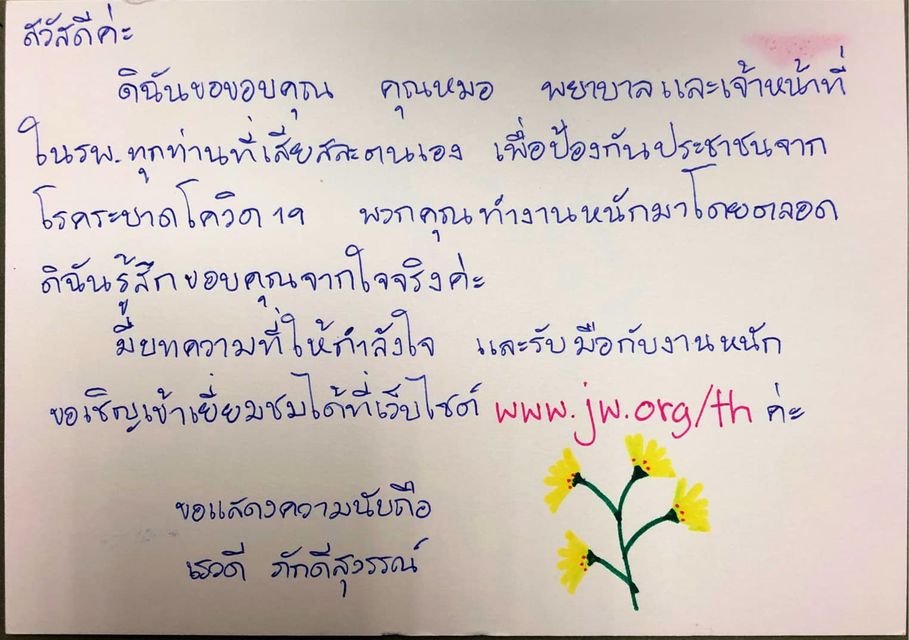 สวัสดีค่ะ
ดิฉันขอขอบคุณ คุณหมอ พยาบาลและเจ้าหน้าที่
ในรพ.ทุกท่านที่เสียสละตนเอง เพื่อป้องกันประชาชนจาก
โรคระบาดโควิด 19 พวกคุณทำงานหนักมาโดยตลอด
ดิฉันรู้สึกขอบคุณจากใจจริงค่ะ
มีบทความที่ให้กำลังใจ และรับมือกับงานหนัก
ขอเชิญเข้าเยี่ยมชมได้ที่เว็บไซต์ www.jw.org/th ค่ะ
ขอแสดงความนับถือ
เรวดี ภักดีสุวรรณ์